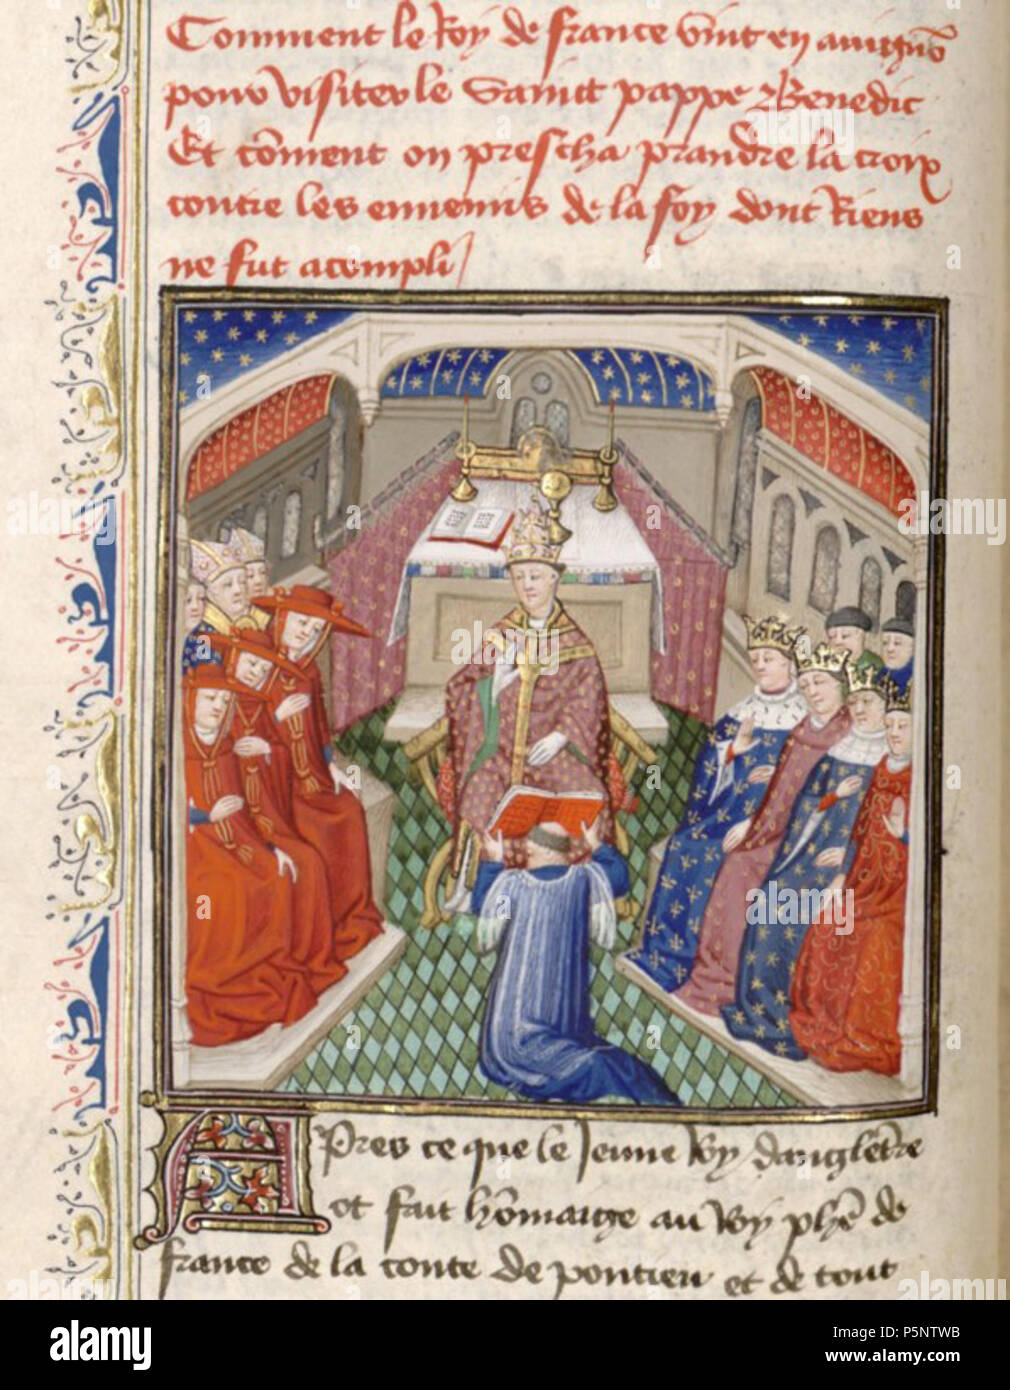 Comment le Roy de france vint en auignõ
pour visiter le Sainct pappe Benedic
Et cõment on prescha prandre la croix
contre les ennemis de la foy dont Riens
ne fut acompli
Apres ce que le Jeune Roy dangletẽre
ot fait hõmaige au Roy phẽ de
france de la conte de pontieu et de tout
alamy
Image ID: P5NTWB
www.alamy.com